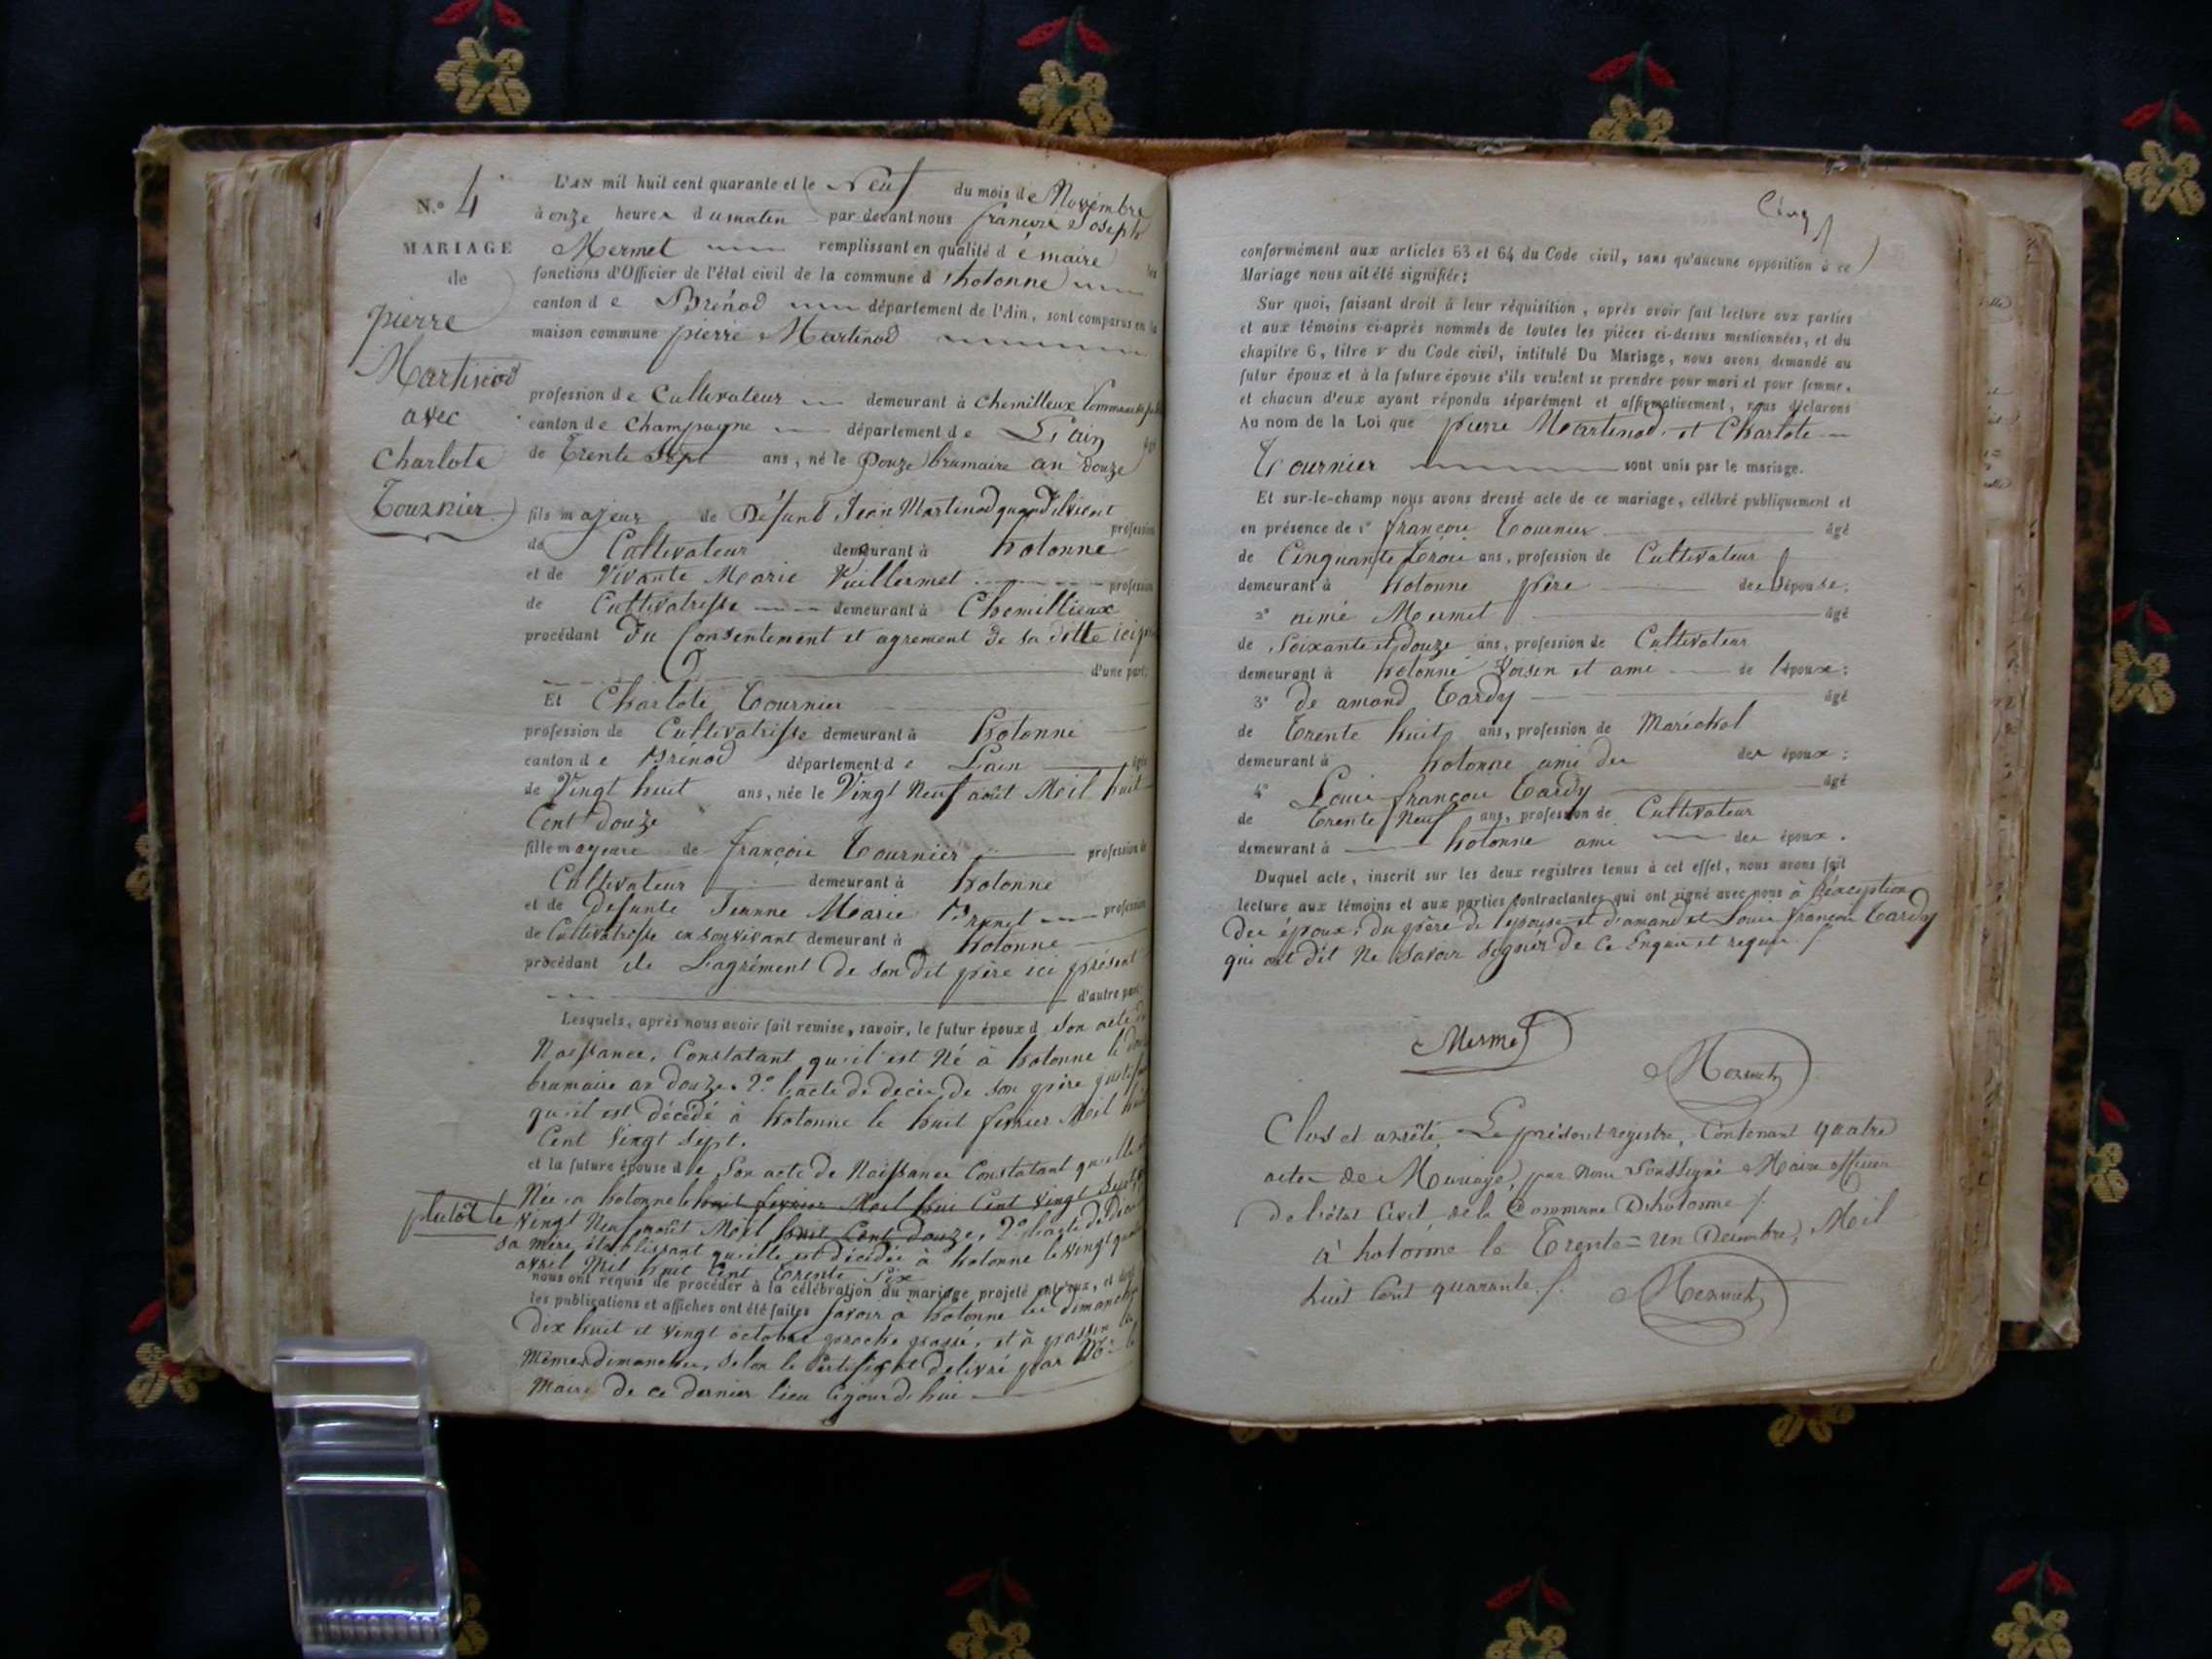 N.o 4
MARIAGE
de
pierre
Martinod
avec
Charlote
Tournier
L'AN mil huit cent quarante et le Neuf du mois de Novembre
à onze heures du matin par devant nous françois Joseph
Mermet remplissant en qualité de maire les
fonctions d'Officier de l'état civil de la commune d'hotonne
canton de Brénod département de l'Ain, sont comparus en la
maison commune pierre Martinod
profession de Cultivateur demeurant à Chemilleux Commune de
canton de Champagne département de L'ain âgé
de Trente Sept ans, né le Douze brumaire an douze
fils majeur de Défunt Jean Martinod quand il vivoit profession
de Cultivateur demeurant à hotonne
et de Vivante Marie Vuillermet profession
de Cultivatrisse demeurant à Chemillieux
procédant Du Consentement et agrement de sa ditte ici
d'une part;
Et Charlote Tournier
profession de Cultivatrisse demeurant à hotonne
canton de Brénod département de Lain âgée
de Vingt huit ans, née le Vingt Neuf août Mil huit
Cent douze
fille mageure de françois Tournier profession de
Cultivateur demeurant à hotonne
et de defunte Jeanne Marie profession
de Cultivatrisse en son vivant demeurant à hotonne
procédant de L'agrément de son dit père ici présent
d'autre part
Lesquels, après nous avoir fait remise, savoir, le futur époux d son acte de
Naissance, Constatant qu'il est Né à hotonne le
brumaire an douze. 2o l'acte de decès de son père
qu'il est décédé à hotonne le huit fevrier Mil huit
Cent Vingt Sept.
et la future épouse de Son acte de Naissance Constatant qu'elle
Née à hotonne le huit fevrier Mil hui Cent Vingt Sept
plutôt le Vingt Neuf août Mil huit Cent douze, 2o l'acte de Décès
sa mère, établissant qu'elle est décédée à hotonne le vingt
avril Mil huit Cent Trente Six
nous ont requis de procéder à la célébration du mariage projeté entr'eux, et dont
les publications et affiches ont été faites savoir à hotonne les dimanches
Dix huit et vingt octobre proche passé, et à passin les
Mêmes dimanches, selon le Certificat délivré par Mr le
Maire de ce dernier lieu Cejourd'hui
Cinq
conformément aux articles 63 et 64 du Code civil, sans qu'aucune opposition à ce
Mariage nous ait été signifiée;
Sur quoi, faisant droit à leur réquisition, après avoir fait lecture aux parties
et aux témoins ci-après nommés de toutes les pièces ci-dessus mentionnées, et du
chapitre 6, titre v du Code civil, intitulé Du Mariage, nous avons demandé au
futur époux et à la future épouse s'ils veulent se prendre pour mari et pour femme,
et chacun d'eux ayant répondu séparément et affirmativement, nous déclarons
Au nom de la Loi que pierre Martinod, et Charlote
Tournier sont unis par le mariage.
Et sur-le-champ nous avons dressé acte de ce mariage, célébré publiquement et
en présence de 1o françois Tournier âgé
de Cinquante trois ans, profession de Cultivateur
demeurant à hotonne père de l'épouse;
2o aimé Mermet âgé
de Soixante et douze ans, profession de Cultivateur
demeurant à hotonne Voisin et ami de l'époux;
3o de amand Tardy âgé
de Trente huit ans, profession de Maréchal
demeurant à hotonne ami des des époux;
4o Louis françois Tardy âgé
de Trente Neuf ans, profession de Cultivateur
demeurant à hotonne ami des époux.
Duquel acte, inscrit sur les deux registres tenus à cet effet, nous avons fait
lecture aux témoins et aux parties contractantes qui ont signé avec nous à l'exception
Des époux, du père de l'épouse et d'amand et Louis françois Tardy
qui ont dit Ne Savoir Signer De Ce Enquis et requis
Mermet
Mermet
Clos et arrêté Le présent registre, Contenant quatre
actes de Mariage, par Nous Soussigné Maire officier
de l'état Civil de la Commune D'hotonne
à hotonne le Trente = un Decembre, Mil
huit Cent quarante.
Mermet